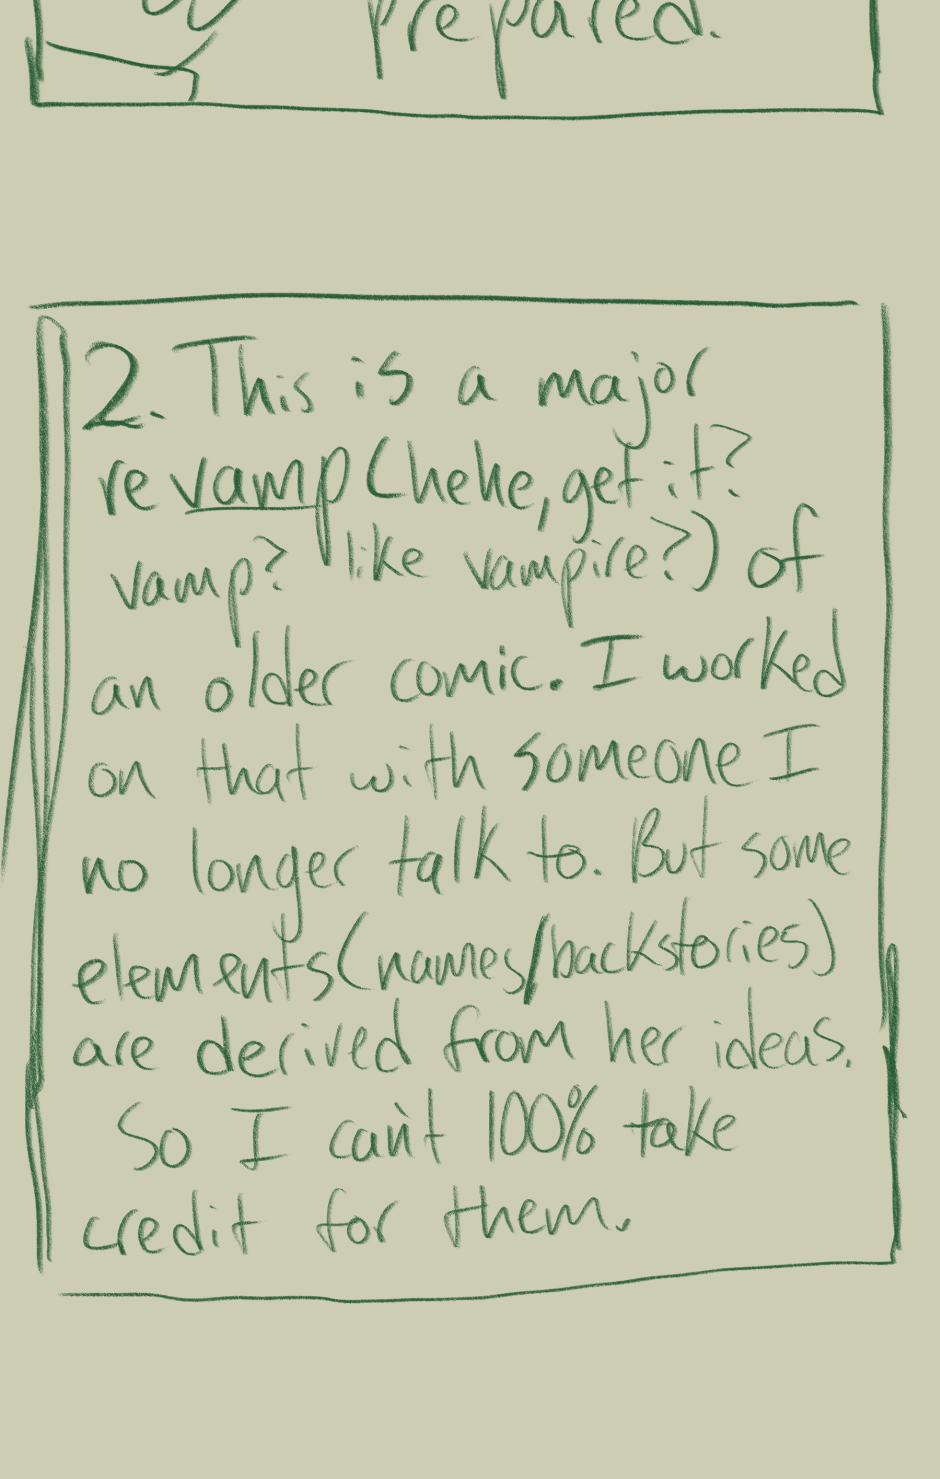 prepared.
2. This is a major
revamp (hehe, get it?
vamp? like vampire?) of
an older comic. I worked
on that with someone I
no longer talk to. But some
elements (names/backstories)
are derived from her ideas.
So I can't 100% take
credit for them.